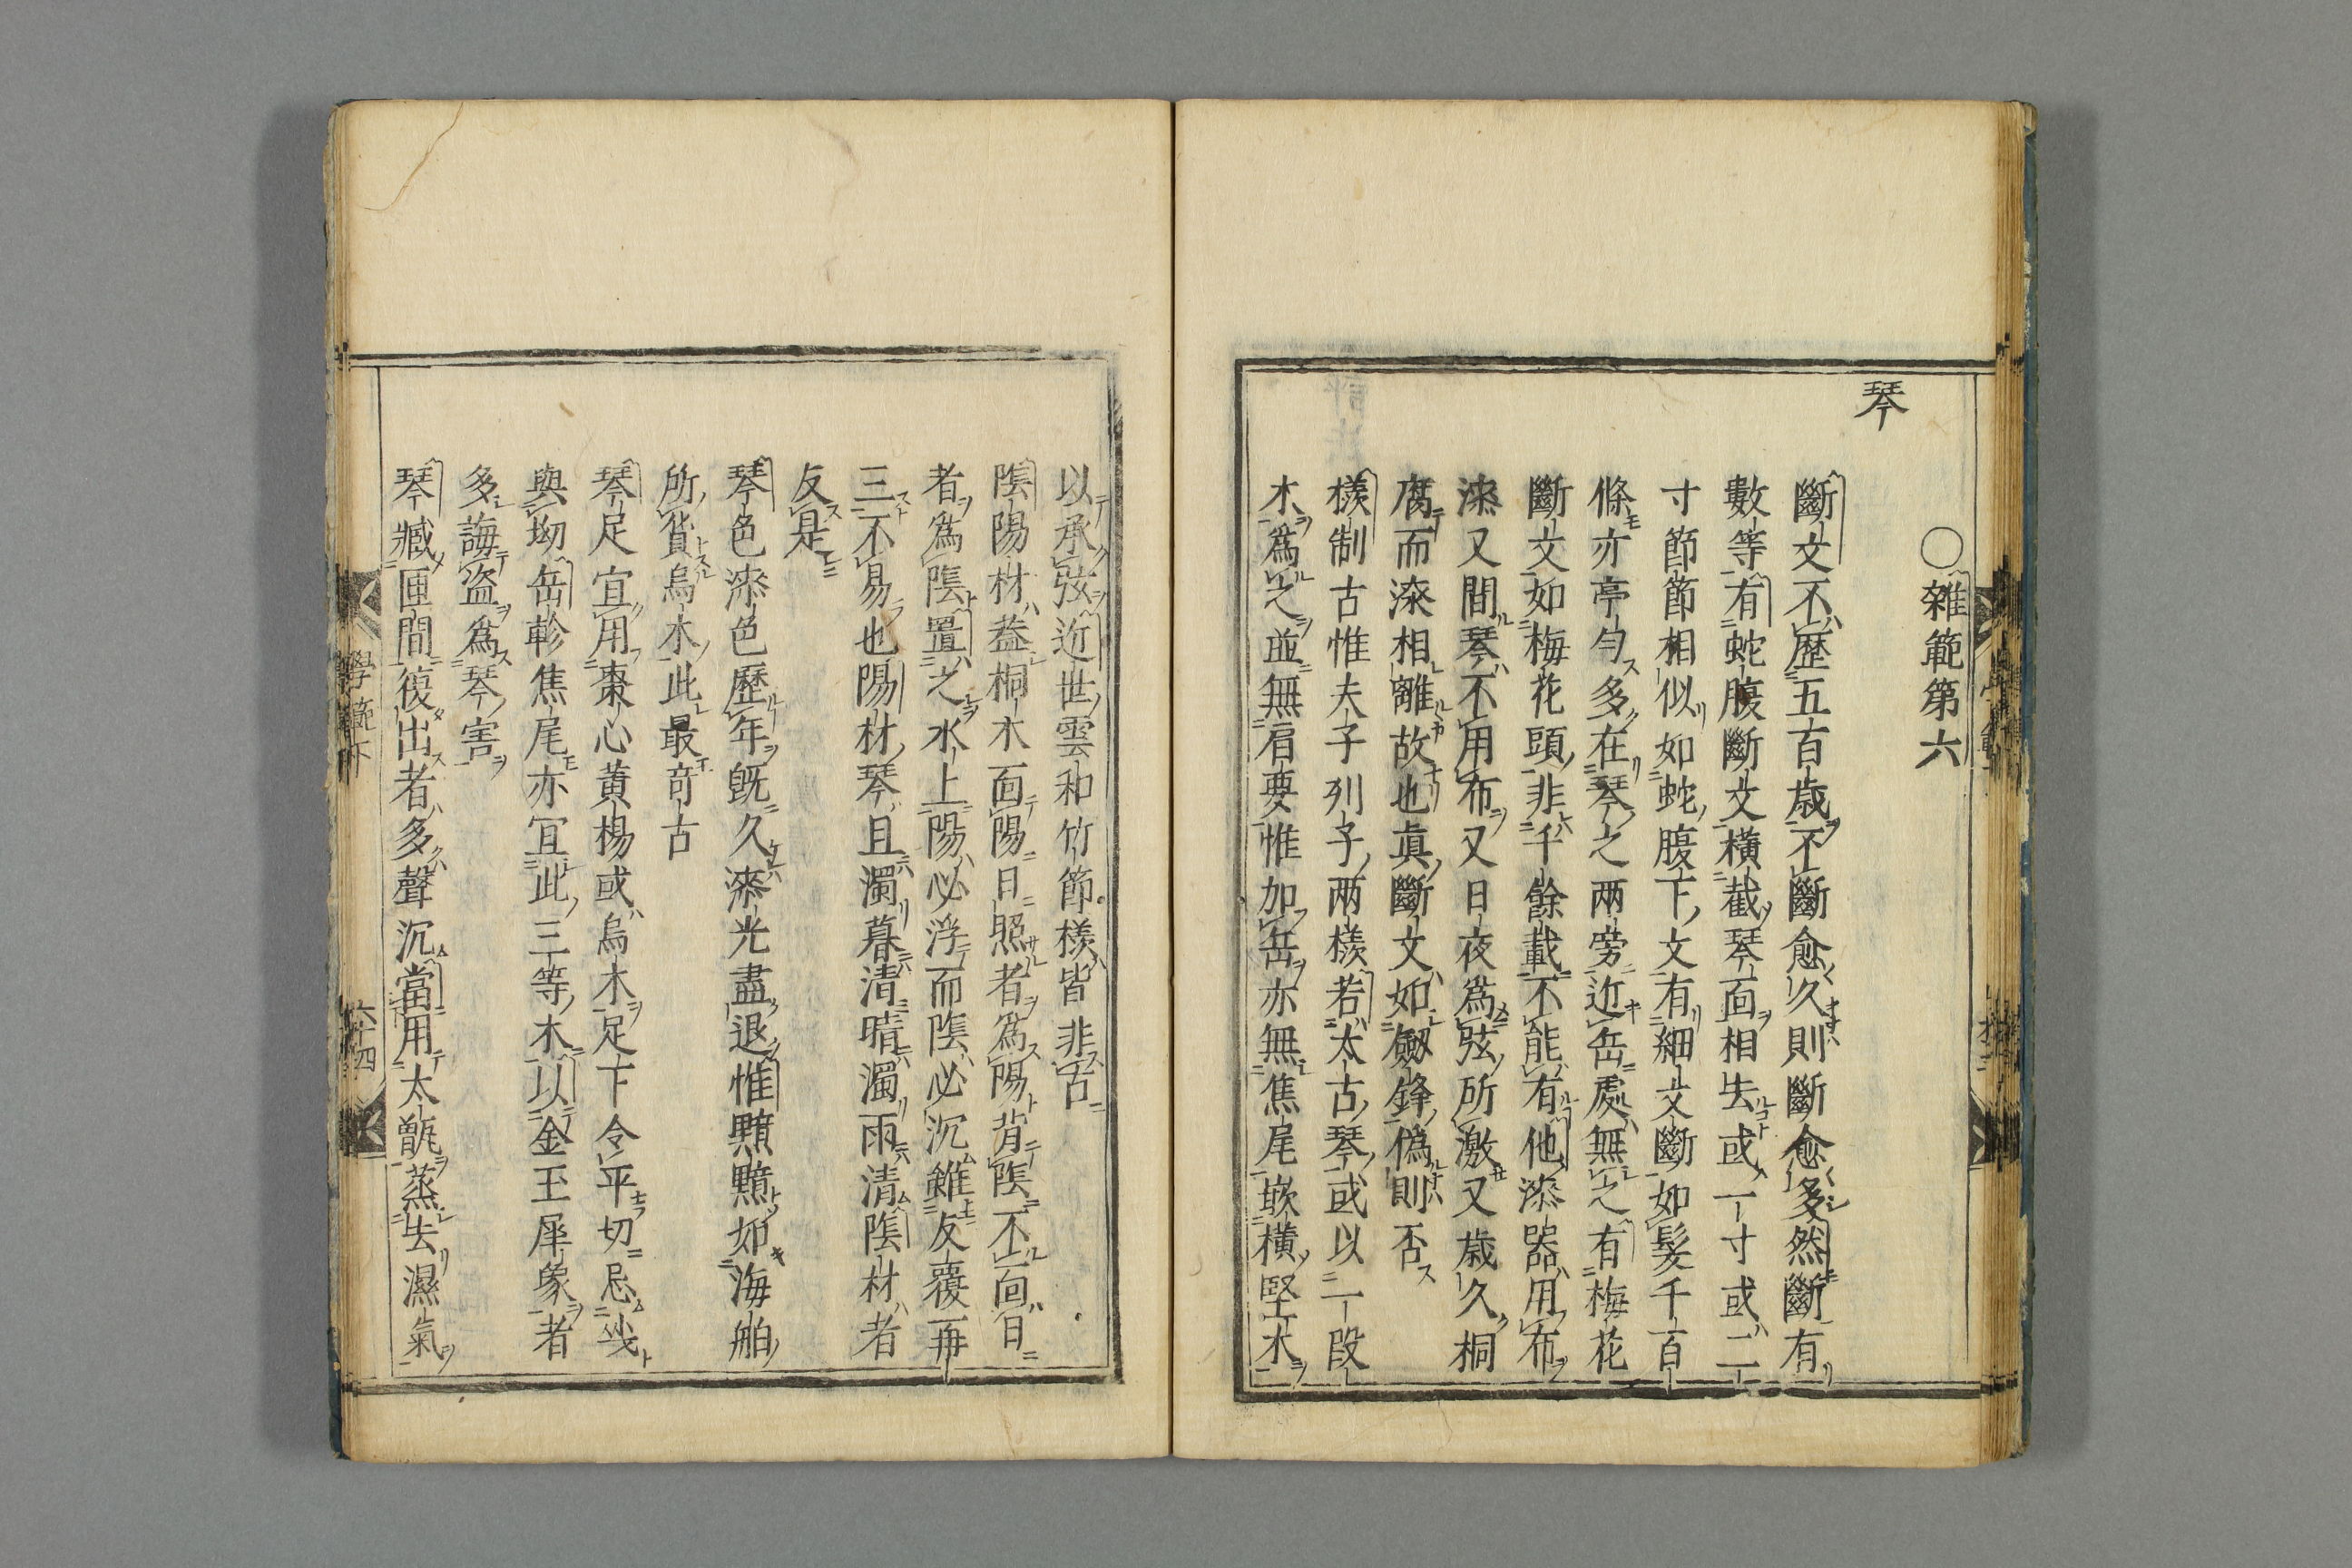 ○雜範第六
琴
斷文不歷五百歳不斷愈久則斷愈多然斷有
數等有蛇腹斷文橫截琴面相去或一寸或二
寸節節相似如蛇腹下文有細文斷如髮千百
條亦亭勻多在琴之兩旁近岳處無之有梅花
斷文如梅花頭非千餘載不能有他漆器用布
漆又間琴不用布又日夜爲弦所激又歳久桐
腐而漆相離故也眞斷文如劒鋒僞則否
樣制古惟夫子列子兩樣若太古琴或以一段
木爲之並無肩要惟加岳亦無焦尾嵌橫堅木
以承弦近世雲和竹節樣皆非古
陰陽材葢桐木面陽日照者爲陽背陰不面日
者爲陰置之水上陽必浮而陰必沉雖反覆再
三不易也陽材琴旦濁暮清晴濁雨清陰材者
反是
琴色漆色歷年既久漆光盡退惟黯黯如海舶
所貨烏木此最竒古
琴足宜用棗心黄楊或烏木足下令平切忌尖
與坳岳軫焦尾亦宜此三等木以金玉犀象者
多誨盜爲琴害
琴臧匣間復出者多聲沉當用太甑蒸去濕氣
學範下
六十四